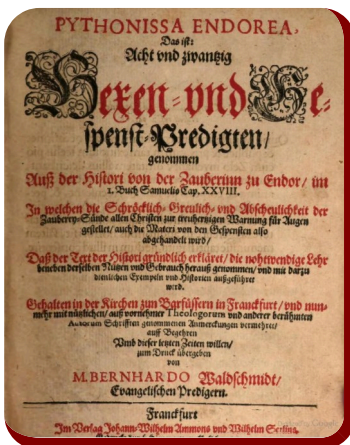 PYTHONISSA ENDOREA,
Das ist:
Acht vnd zwantzig
Hexen- vnd Ge-
spenst-Predigten/
genommen
Auß der Histori von der Zauberinn zu Endor/ im
1. Buch Samuelis Cap. XXVIII.
In welchen die Schröcklich- Greulich- vnd Abscheulichkeit der
Zauberey-Sünde allen Christen zur trewhertzigen Warnung für Augen
gestellet/ auch die Materi von den Gespensten also
abgehandelt wird/
Daß der Text der Histori gründlich erkläret/ die nohtwendige Lehr
beneben derselben Nutzen vnd Gebrauch herauß genommen/ vnd mit darzu
dienlichen Exempeln vnd Historien außgeführet
wird.
Gehalten in der Kirchen zum Barfüssern in Franckfurt/ vnd nun-
mehr mit nützlichen/ auß vornehmer Theologorum vnd anderer berühmten
Authorum Schrifften genommenen Anmerckungen vermehret/
auff Begehren
Vmb dieser letzten Zeiten willen/
zum Druck übergeben
von
M. BERNHARDO Waldschmidt/
Evangelischen Predigern.
Franckfurt
Im Verlag Johann-Wilhelm Ammons vnd Wilhelm Serlins.